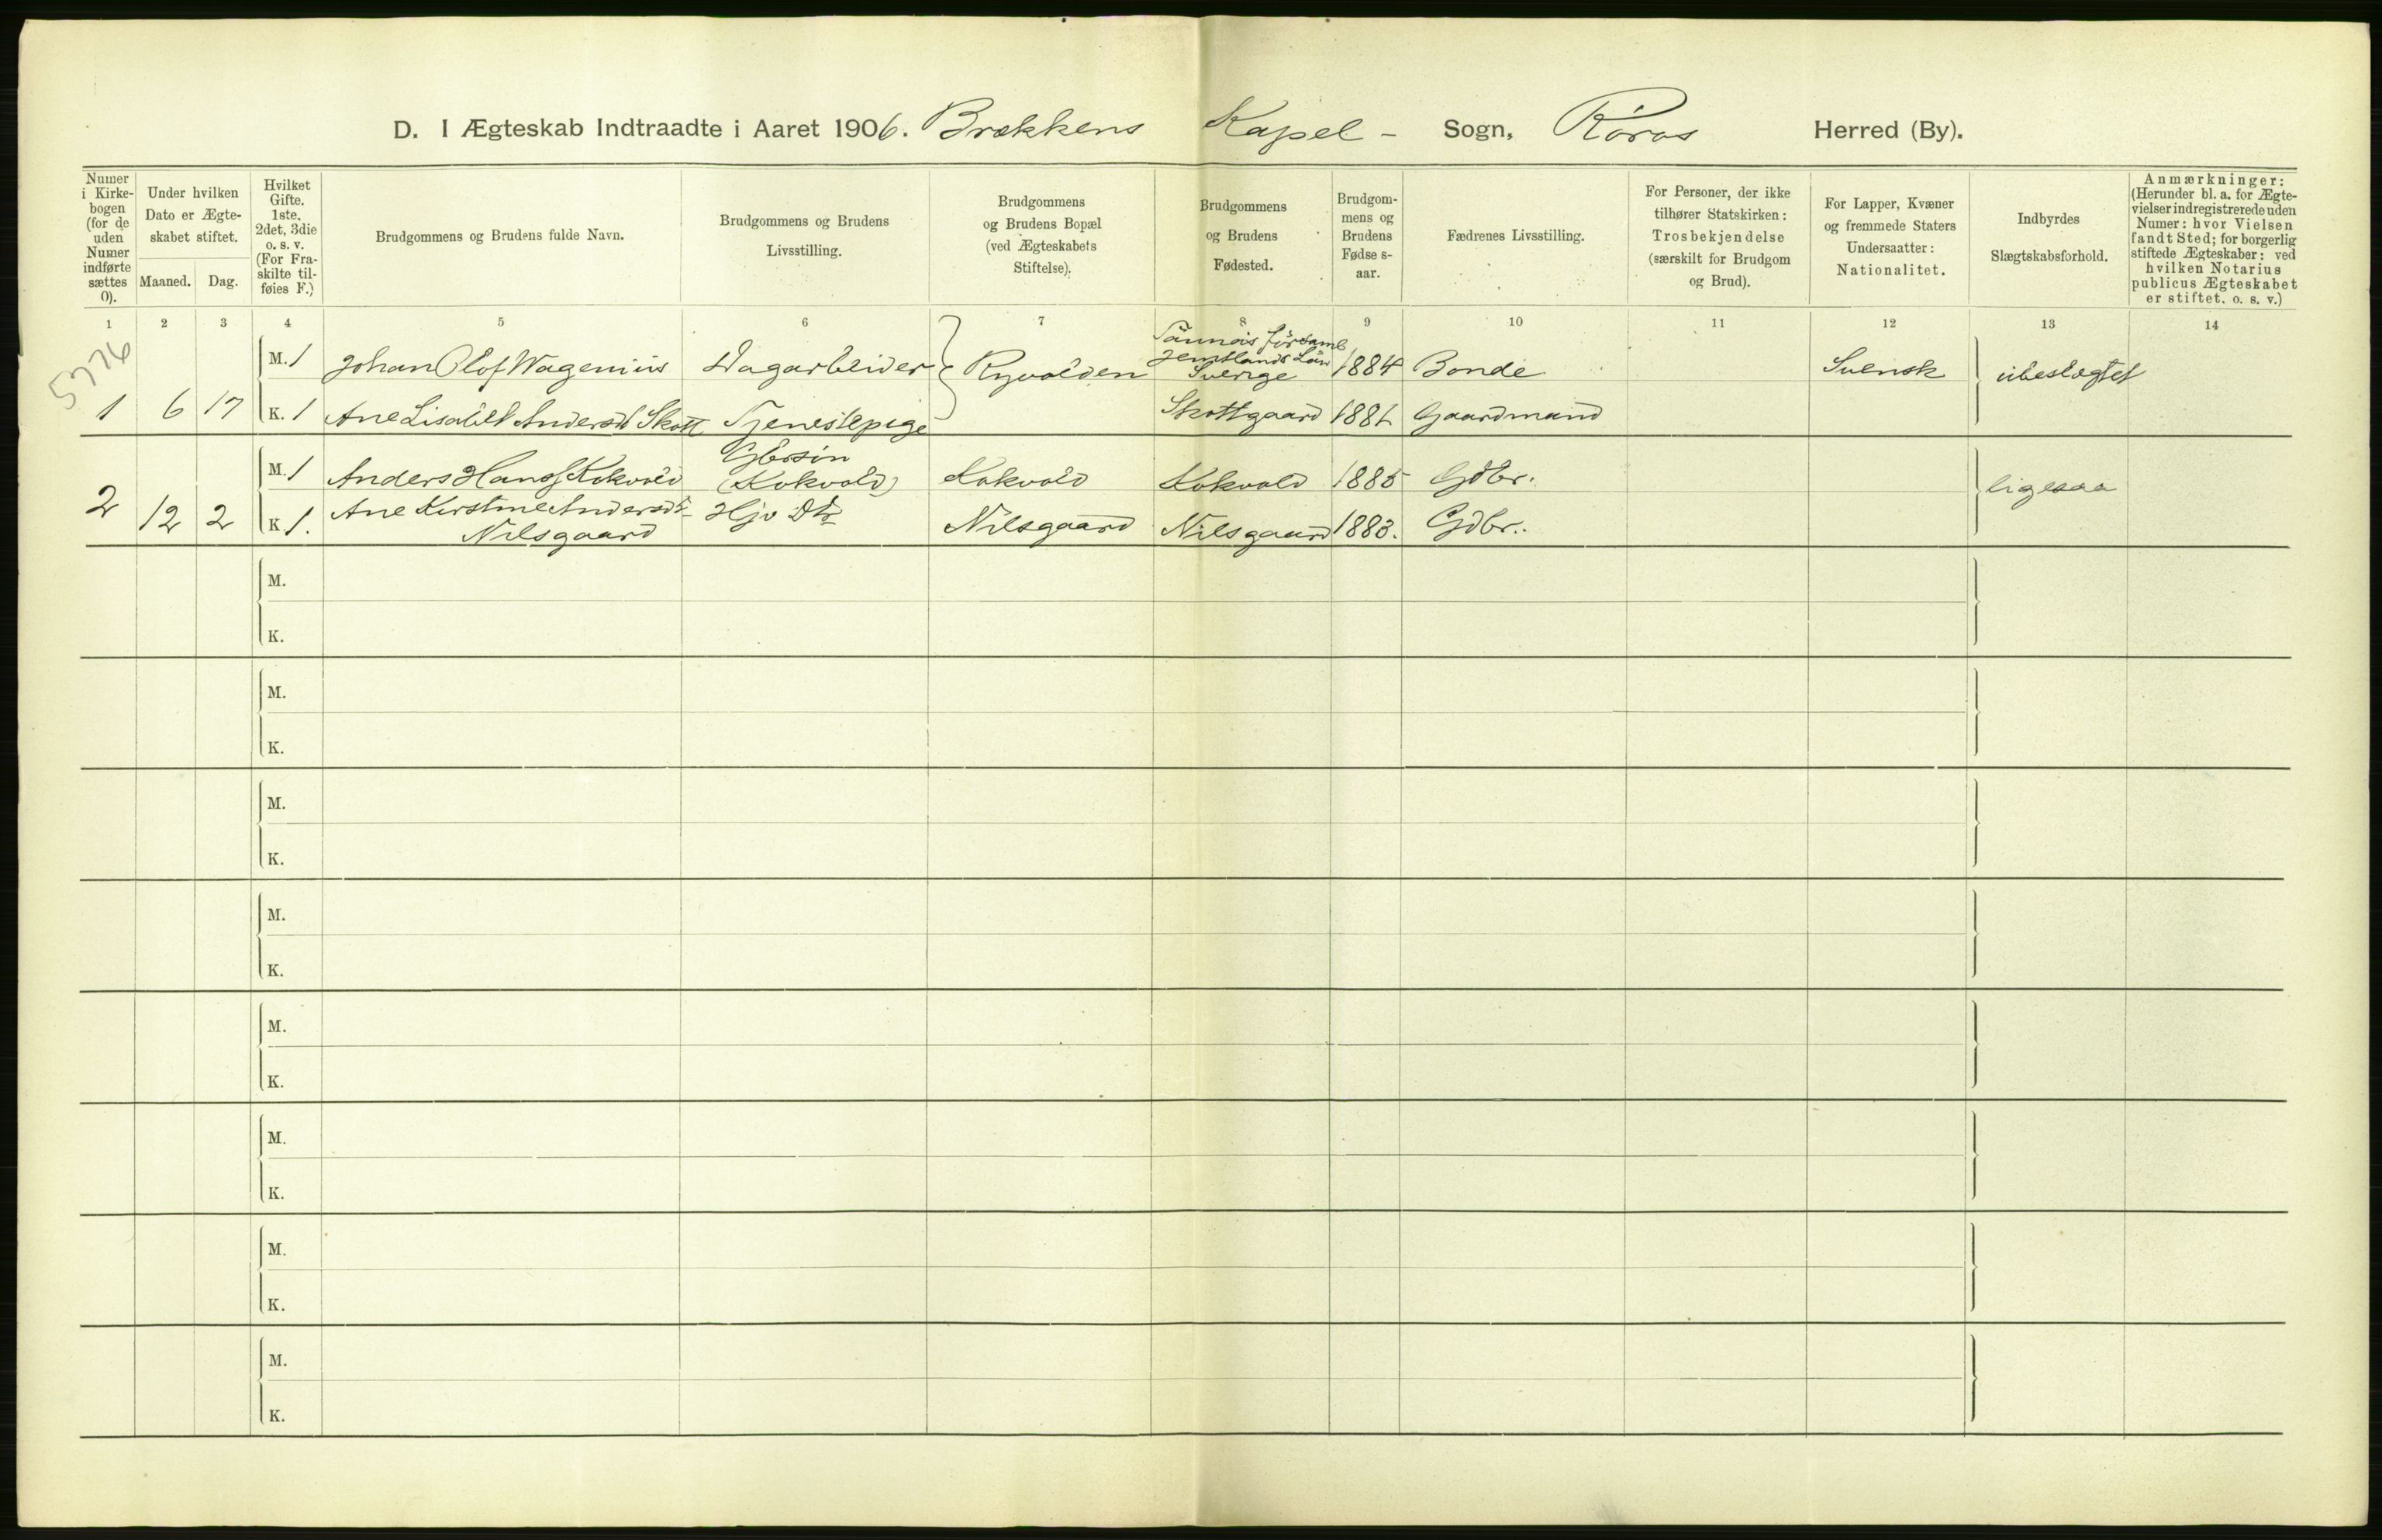 D. I Ægteskab Indtraadte i Aaret 1906. Brækkens Kapel - Sogn, Røros Herred (By).
Numer
i Kirke-
bogen
(for de
uden
Numer
indførte
sættes
0).
Under hvilken
Dato er Ægte-
skabet stiftet.
Maaned. Dag.
Hvilket
Gifte.
1ste,
2det, 3die
o. s. v.
(For Fra-
skilte til-
føies F.)
Brudgommens og Brudens fulde Navn.
Brudgommens og Brudens
Livsstilling.
Brudgommens
og Brudens Bopæl
(ved Ægteskabets
Stiftelse).
Brudgommens
og Brudens
Fødested.
Brudgom-
mens og
Brudens
Fødse s-
aar.
Fædrenes Livsstilling.
For Personer, der ikke
tilhører Statskirken:
Trosbekjendelse
(særskilt for Brudgom
og Brud).
For Lapper, Kvæner
og fremmede Staters
Undersaatter:
Nationalitet.
Indbyrdes
Slægtskabsforhold.
Anmærkninger:
(Herunder bl. a. for Ægte-
vielser indregistrerede uden
Numer: hvor Vielsen
fandt Sted; for borgerlig
stiftede Ægteskaber: ved
hvilken Notarius
publicus Ægteskabet
er stiftet, o. s. v.)
1 2 3 4 5 6 7 8 9 10 11 12 13 14
5776
Tännäs församl
Jemtlands Län
M. 1 Johan Olof Wagenius Dagarbeider Ryvolden Sverige 1884 Bonde Svensk ubeslægtet
1 6 17 K. 1 Ane Lisabet Andersdt Skott Tjenestepige Skottgaard 1881 Gaardmand
Gbrsøn
M. 1 Anders Hanss Kokvold (Kokvold) Kokvold Kokvold 1885 Gdbr. ligesaa
2 12 2 K 1. Ane Kirstine Andersdt- Hjv Dtr Nilsgaard Nilsgaard 1883. Gdbr.
Nilsgaard
M.
K.
M.
K.
M.
K.
M.
K.
M.
K.
M.
K.
M.
K.
M.
K.